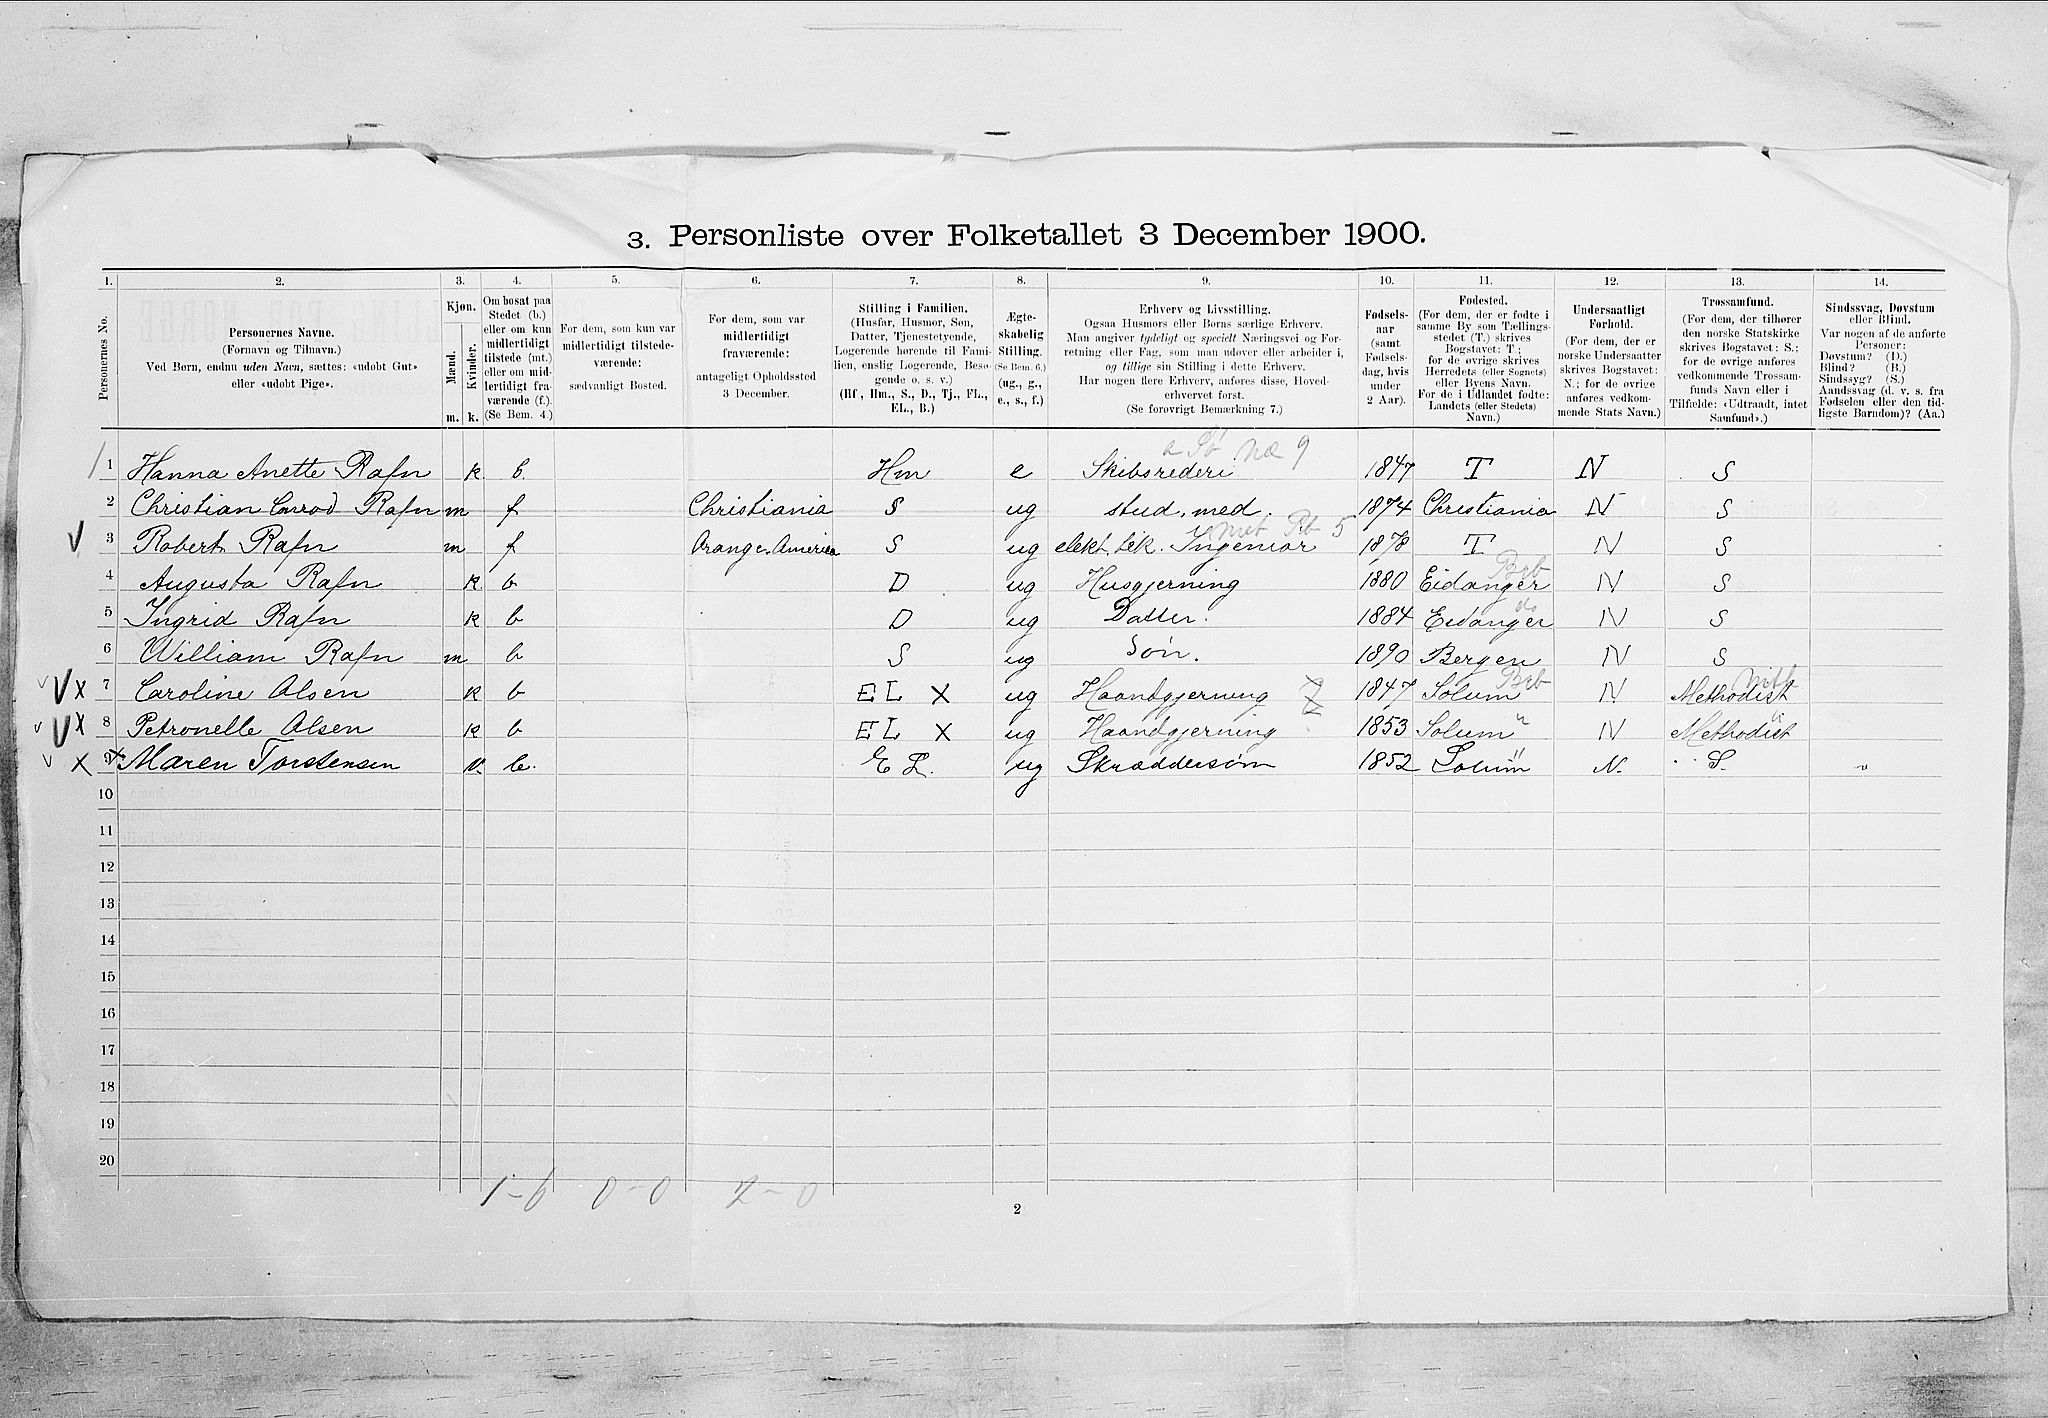 3. Personliste over Folketallet 3 December 1900.
1. 2. 3. 4. 5. 6. 7. 8. 9. 10. 11. 12. 13. 14.
Personernes No.
Personernes Navne.
(Fornavn og Tilnavn.)
Ved Børn, endnu uden Navn, sættes: «udøbt Gut»
eller «udøbt Pige».
Kjøn.
Mænd. Kvinder.
m. k.
Om bosat paa
Stedet (b.)
eller om kun
midlertidigt
tilstede (mt.)
eller om mid-
lertidigt fra-
værende (f.)
(Se Bem. 4.)
For dem, som kun var
midlertidigt tilstede-
værende:
sædvanligt Bosted.
For dem, som var
midlertidigt
fraværende:
antageligt Opholdssted
3 December.
Stilling i Familien.
(Husfar, Husmor, Søn,
Datter, Tjenestetyende,
Logerende hørende til Fami-
lien, enslig Logerende, Besø-
gende o. s. v.)
(Hf, Hm., S., D., Tj., FL.,
EL., B.)
Ægte-
skabelig
Stilling.
(Se Bem. 6.)
(ug., g.,
e., s., f.)
Erhverv og Livsstilling.
Ogsaa Husmors eller Børns særlige Erhverv.
Man angiver tydeligt og specielt Næringsvei og For-
retning eller Fag, som man udøver eller arbeider i,
og tillige sin Stilling i dette Erhverv.
Har nogen flere Erhverv, anføres disse, Hoved-
erhvervet først.
(Se forøvrigt Bemærkning 7.)
Fødsels-
aar
(samt
Fødsels-
dag, hvis
under
2 Aar).
Fødested.
(For dem, der er fødte i
samme By som Tællings-
stedet (T.) skrives
Bogstavet: T.;
for de øvrige skrives
Herredets (eller Sognets)
eller Byens Navn.
For de i Udlandet fødte:
Landets (eller Stedets)
Navn.)
Undersaatligt
Forhold.
(For dem, der er
norske Undersaatter
skrives Bogstavet:
N.; for de øvrige
anføres vedkom-
mende Stats Navn.)
Trossamfund.
(For dem, der tilhører
den norske Statskirke
skrives Bogstavet: S.;
for de øvrige anføres
vedkommende Trossam-
funds Navn eller i
Tilfælde: «Udtraadt, intet
Samfund».)
Sindssvag, Døvstum
eller Blind.
Var nogen af de anførte
Personer:
Døvstum? (D.)
Blind? (B.)
Sindssyg? (S.)
Aandssvag (d. v. s. fra
Fødselen eller den tid-
ligste Barndom)? (Aa.)
1 Hanna Anette Rafn k b. Hm e Skibsrederi 1847 T N S
2 Christian Conrad Rafn m f Christiania S ug stud. med. 1874 Christiania N S
3 Robert Rafn m f Orange. America S ug elekt. tek. Ingeniør 5 1878 T N S
4 Augusta Rafn k b D ug Husgjerning 1880 Eidanger N S
5 Ingrid Rafn k b D ug Datter. 1884 Eidanger N S
6 William Rafn m b S ug Søn. 1890 Bergen N S
V X 7 Caroline Olsen k b EL X ug Haandgjerning 1847 Solum N Methodist
V X 8 Petronelle Olsen k b EL X ug Haandgjerning 1853 Solum N Methodist
X 9 Maren Torstensen k. b. EL. ug Skræddersøm 1852 Solum N. S.
10
11
12
13
14
15
16
17
18
19
20
1-6 0-0 2-0
2